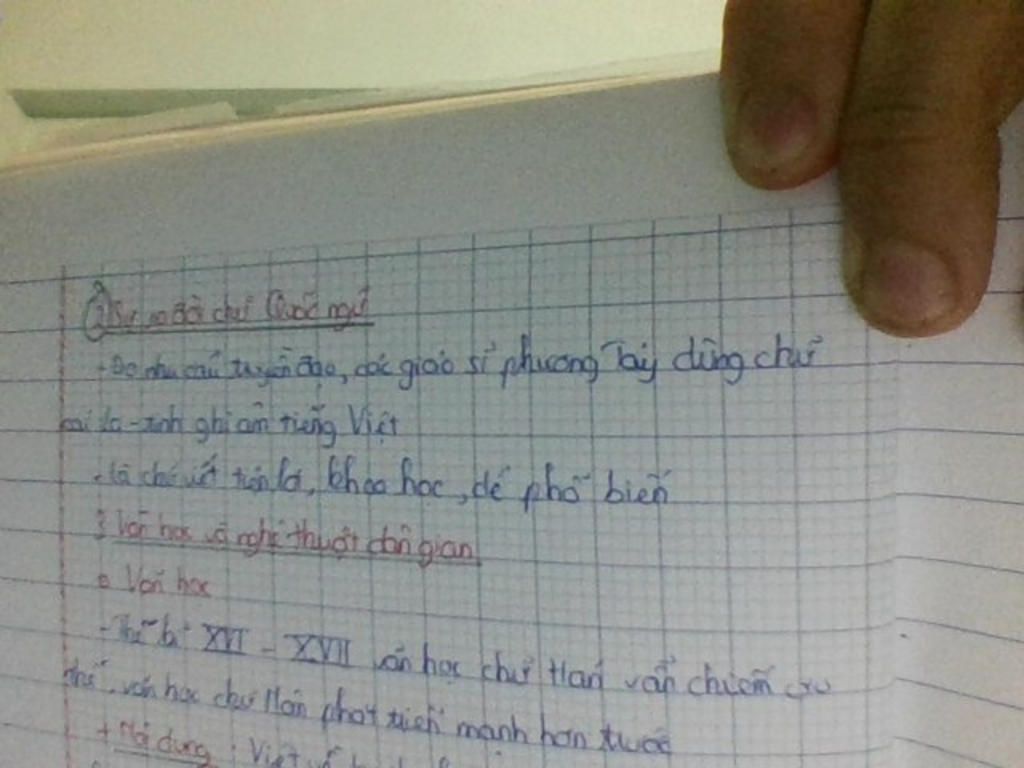 ② Sự ra đời chữ Quốc ngữ
- Do nhu cầu truyền đạo, các giáo sĩ phương Tây dùng chữ
cái la-tinh ghi âm tiếng Việt
- Là chữ viết tiện lợi, khoa học, dễ phổ biến
3 Văn học và nghệ thuật dân gian
a Văn học
- Thế kỉ XVI - XVII văn học chữ Hán vẫn chiếm ưu
thế, văn học chữ Nôm phát triển mạnh hơn trước
+ Nội dung : Viết về